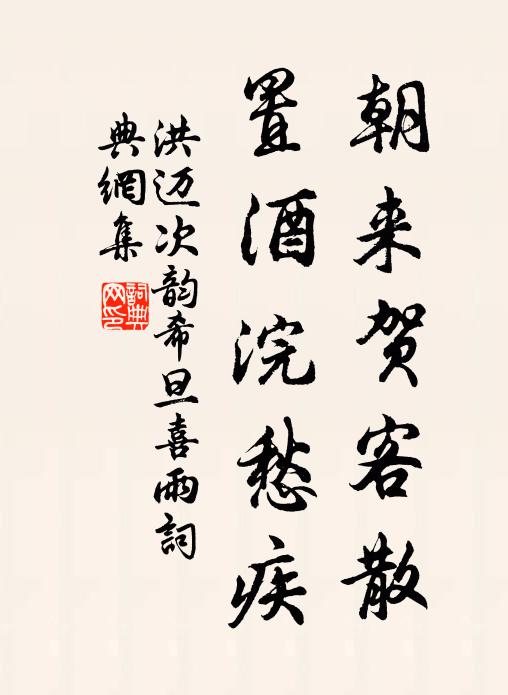 朝来贺客散
置酒浣愁疾
洪迈次韵希旦喜雨詞
典網集
詞典網印